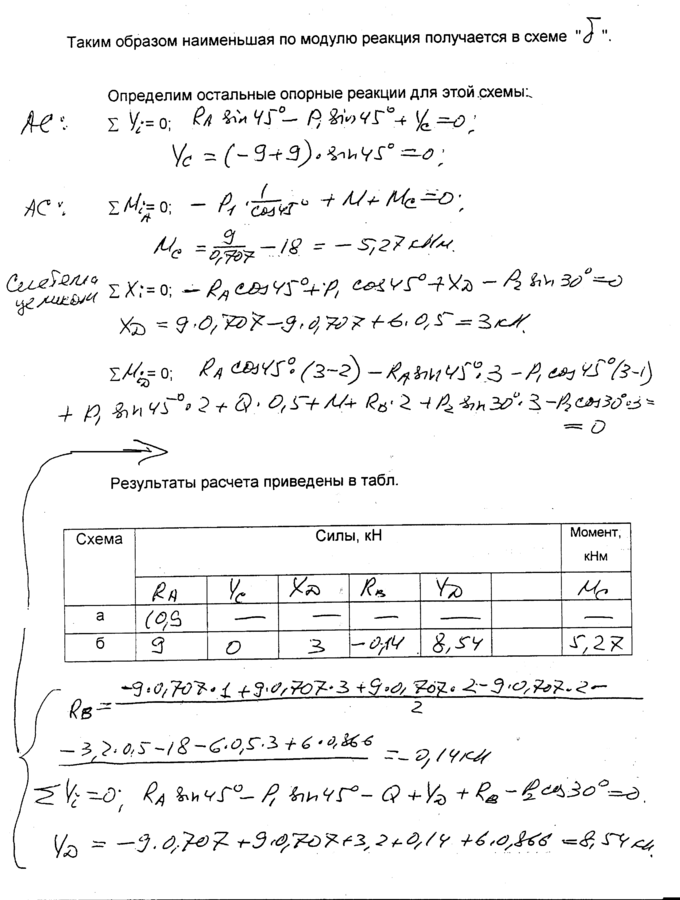 Таким образом наименьшая по модулю реакция получается в схеме "б".
Определим остальные опорные реакции для этой схемы:
AC: ΣYi=0; RA sin45° − P1 sin45° + YC = 0;
YC = (−9+9)·sin45° = 0;
AC: ΣMiA=0; − P1 · 1/cos45° + M + MC = 0;
MC = 9/0,707 − 18 = − 5,27 кНм.
Система целиком ΣXi=0; − RA cos45° + P1 cos45° + XD − P2 sin30° = 0
XD = 9·0,707 − 9·0,707 + 6·0,5 = 3 кН.
ΣMiD=0; RA cos45°·(3−2) − RA sin45°·3 − P1 cos45°(3−1)
+ P1 sin45°·2 + Q·0,5 + M + RB·2 + P2 sin30°·3 − P2 cos30°·3 =
= 0
Результаты расчета приведены в табл.
Схема Силы, кН Момент, кНм
RA YC XD RB YD MC
а 10,9 — — — — —
б 9 0 3 −0,14 8,54 5,27
RB = −9·0,707·1 + 9·0,707·3 + 9·0,707·2 − 9·0,707·2 − / 2
− 3,2·0,5 − 18 − 6·0,5·3 + 6·0,866 = − 0,14 кН
ΣYi=0; RA sin45° − P1 sin45° − Q + YD + RB − P2 cos30° = 0.
YD = − 9·0,707 + 9·0,707 + 3,2 + 0,14 + 6·0,866 = 8,54 кН.